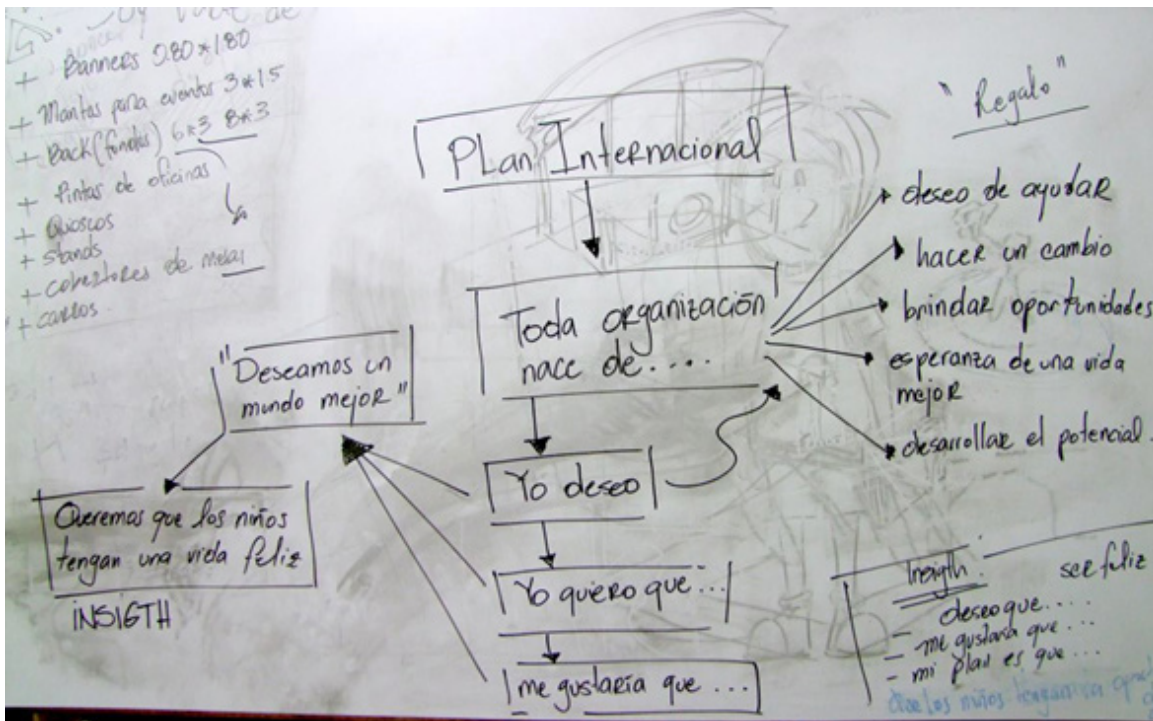 + Banners 0.80*1.80
+ Mantas para eventos 3*1.5
+ Back (fondos) 6*3 8*3
+ Pintas de oficinas
+ Quioscos
+ stands
+ cobertores de metal
+ carros
PLan Internacional
Toda organización
nace de....
Yo deseo
Yo quiero que...
me gustaría que ...
"Deseamos un
mundo mejor"
Queremos que los niños
tengan una vida feliz
INSIGTH
"Regalo"
deseo de ayudar
hacer un cambio
brindar oportunidades
esperanza de una vida
mejor
desarrollar el potencial.
Insigth: ser feliz
- deseo que....
- me gustaría que ...
- mi plan es que ...
que los niños tengan una